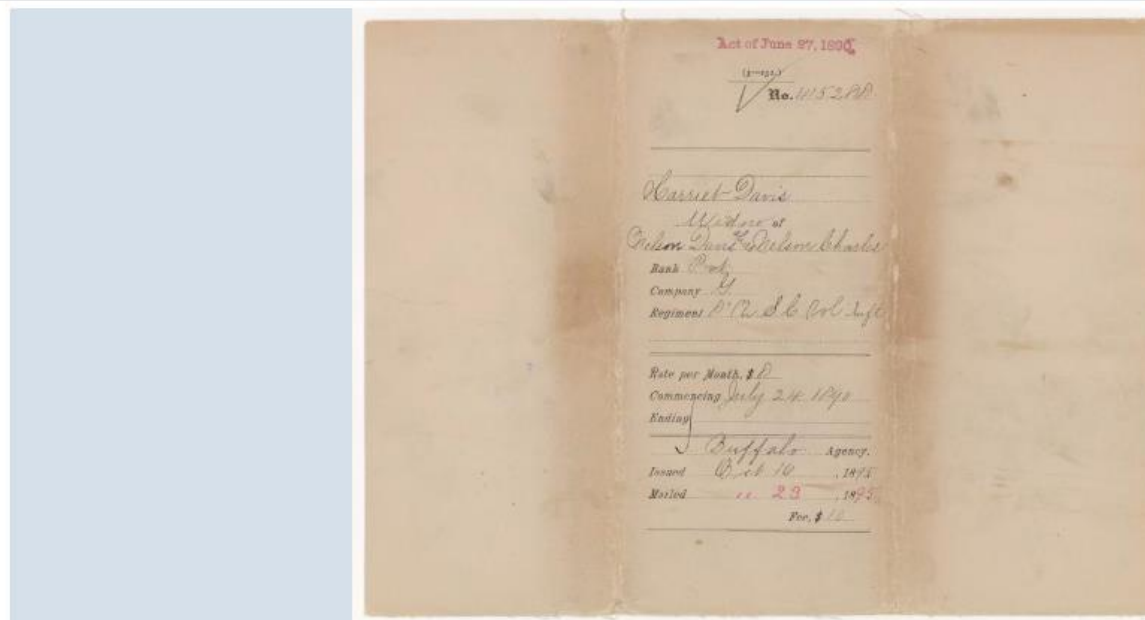 Act of June 27, 1890.
No. 415288
Harriet Davis
Widow of
Nelson Davis Nelson Charles
Rank Pvt.
Company G
Regiment 8" U S C Vol Inft
Rate per Month, $ 8
Commencing July 24 1890
Ending
Buffalo Agency.
Issued Oct 16, 1895
Mailed " 23, 1895
Fee, $ 10